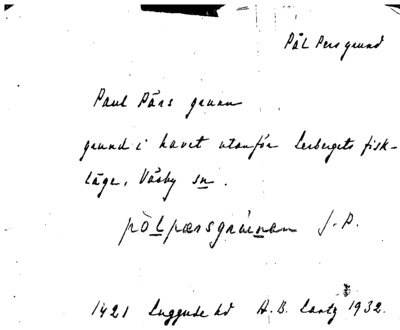 Pål Pers grund
Paul Pårs grunn
grund i havet utanför Lerbergets fisk-
läge, Väsby sn.
pò̲lpærsgráinan J. P.
1421 Luggude hd A. B. Lantz 1932.